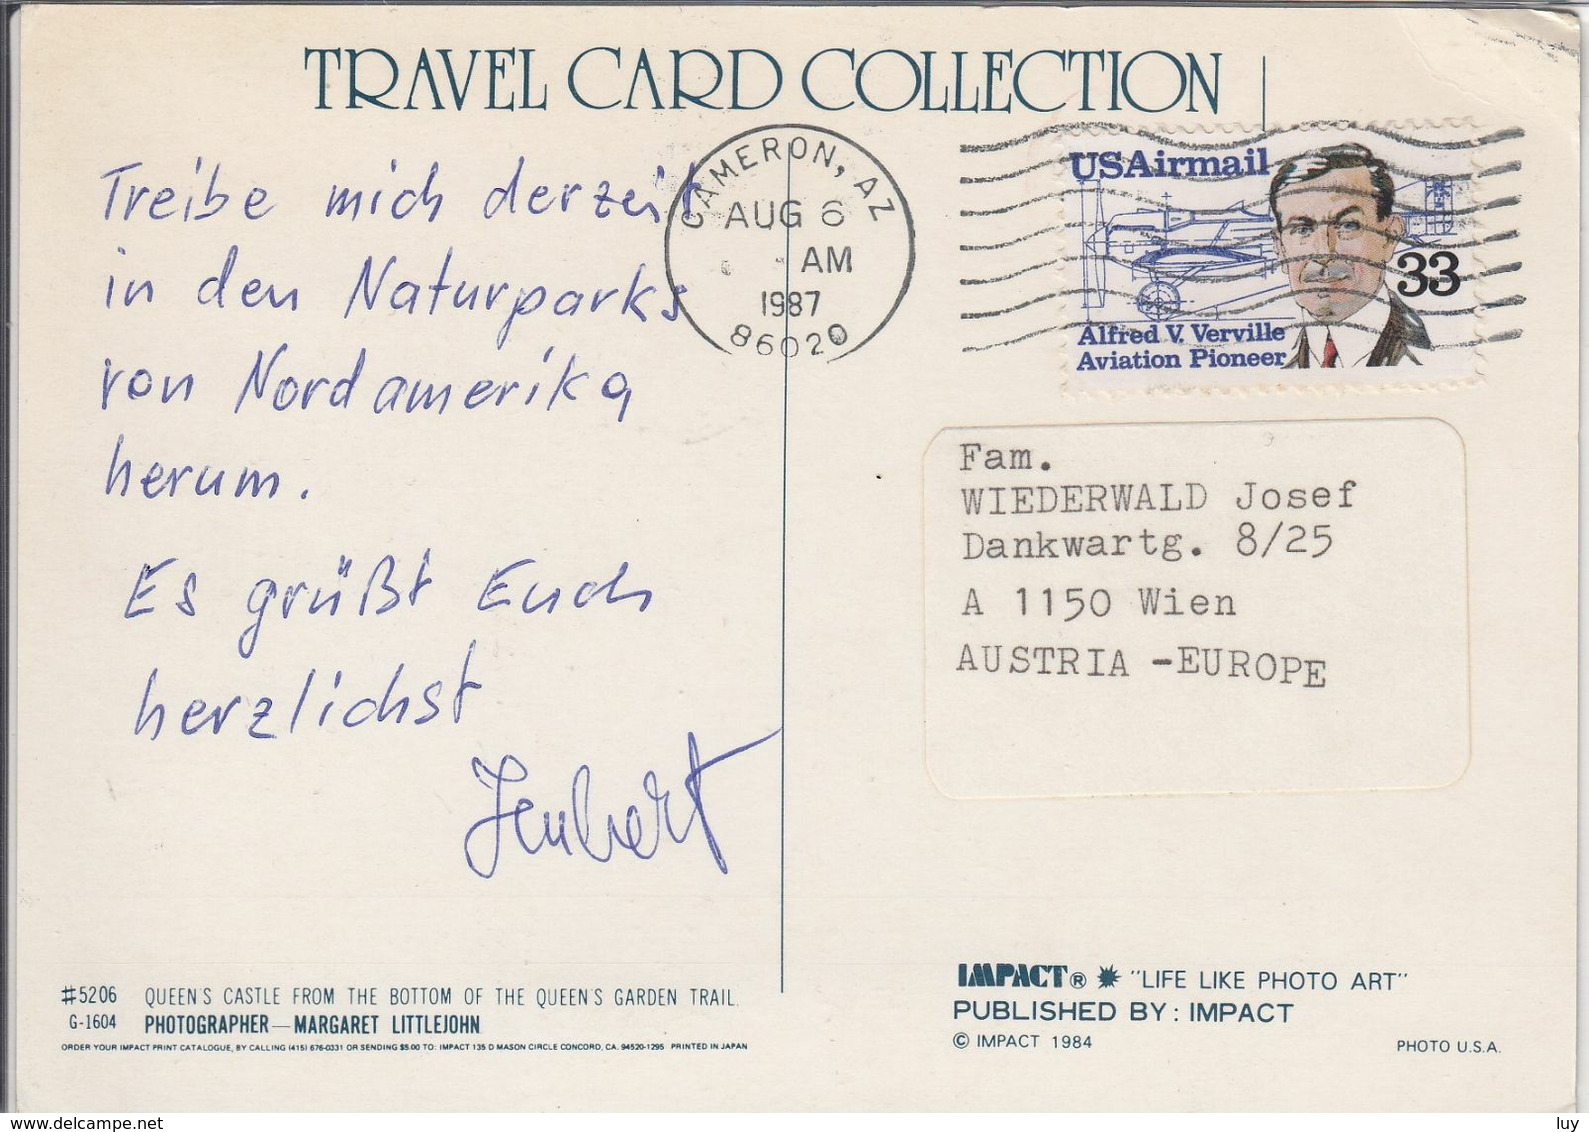 TRAVEL CARD COLLECTION
Treibe mich derzeit
in den Naturparks
von Nordamerika
herum.
Es grüßt Euch
herzlichst
Hubert
CAMERON, AZ
AUG 6
AM
1987
86020
USAirmail
33
Alfred V. Verville
Aviation Pioneer
Fam.
WIEDERWALD Josef
Dankwartg. 8/25
A 1150 Wien
AUSTRIA -EUROPE
#5206 QUEEN'S CASTLE FROM THE BOTTOM OF THE QUEEN'S GARDEN TRAIL.
G-1604 PHOTOGRAPHER—MARGARET LITTLEJOHN
ORDER YOUR IMPACT PRINT CATALOGUE, BY CALLING (415) 676-0331 OR SENDING $5.00 TO: IMPACT 135 D MASON CIRCLE CONCORD, CA. 94520-1295 PRINTED IN JAPAN
IMPACT® "LIFE LIKE PHOTO ART"
PUBLISHED BY: IMPACT
© IMPACT 1984
PHOTO U.S.A.
www.delcampe.net
luy